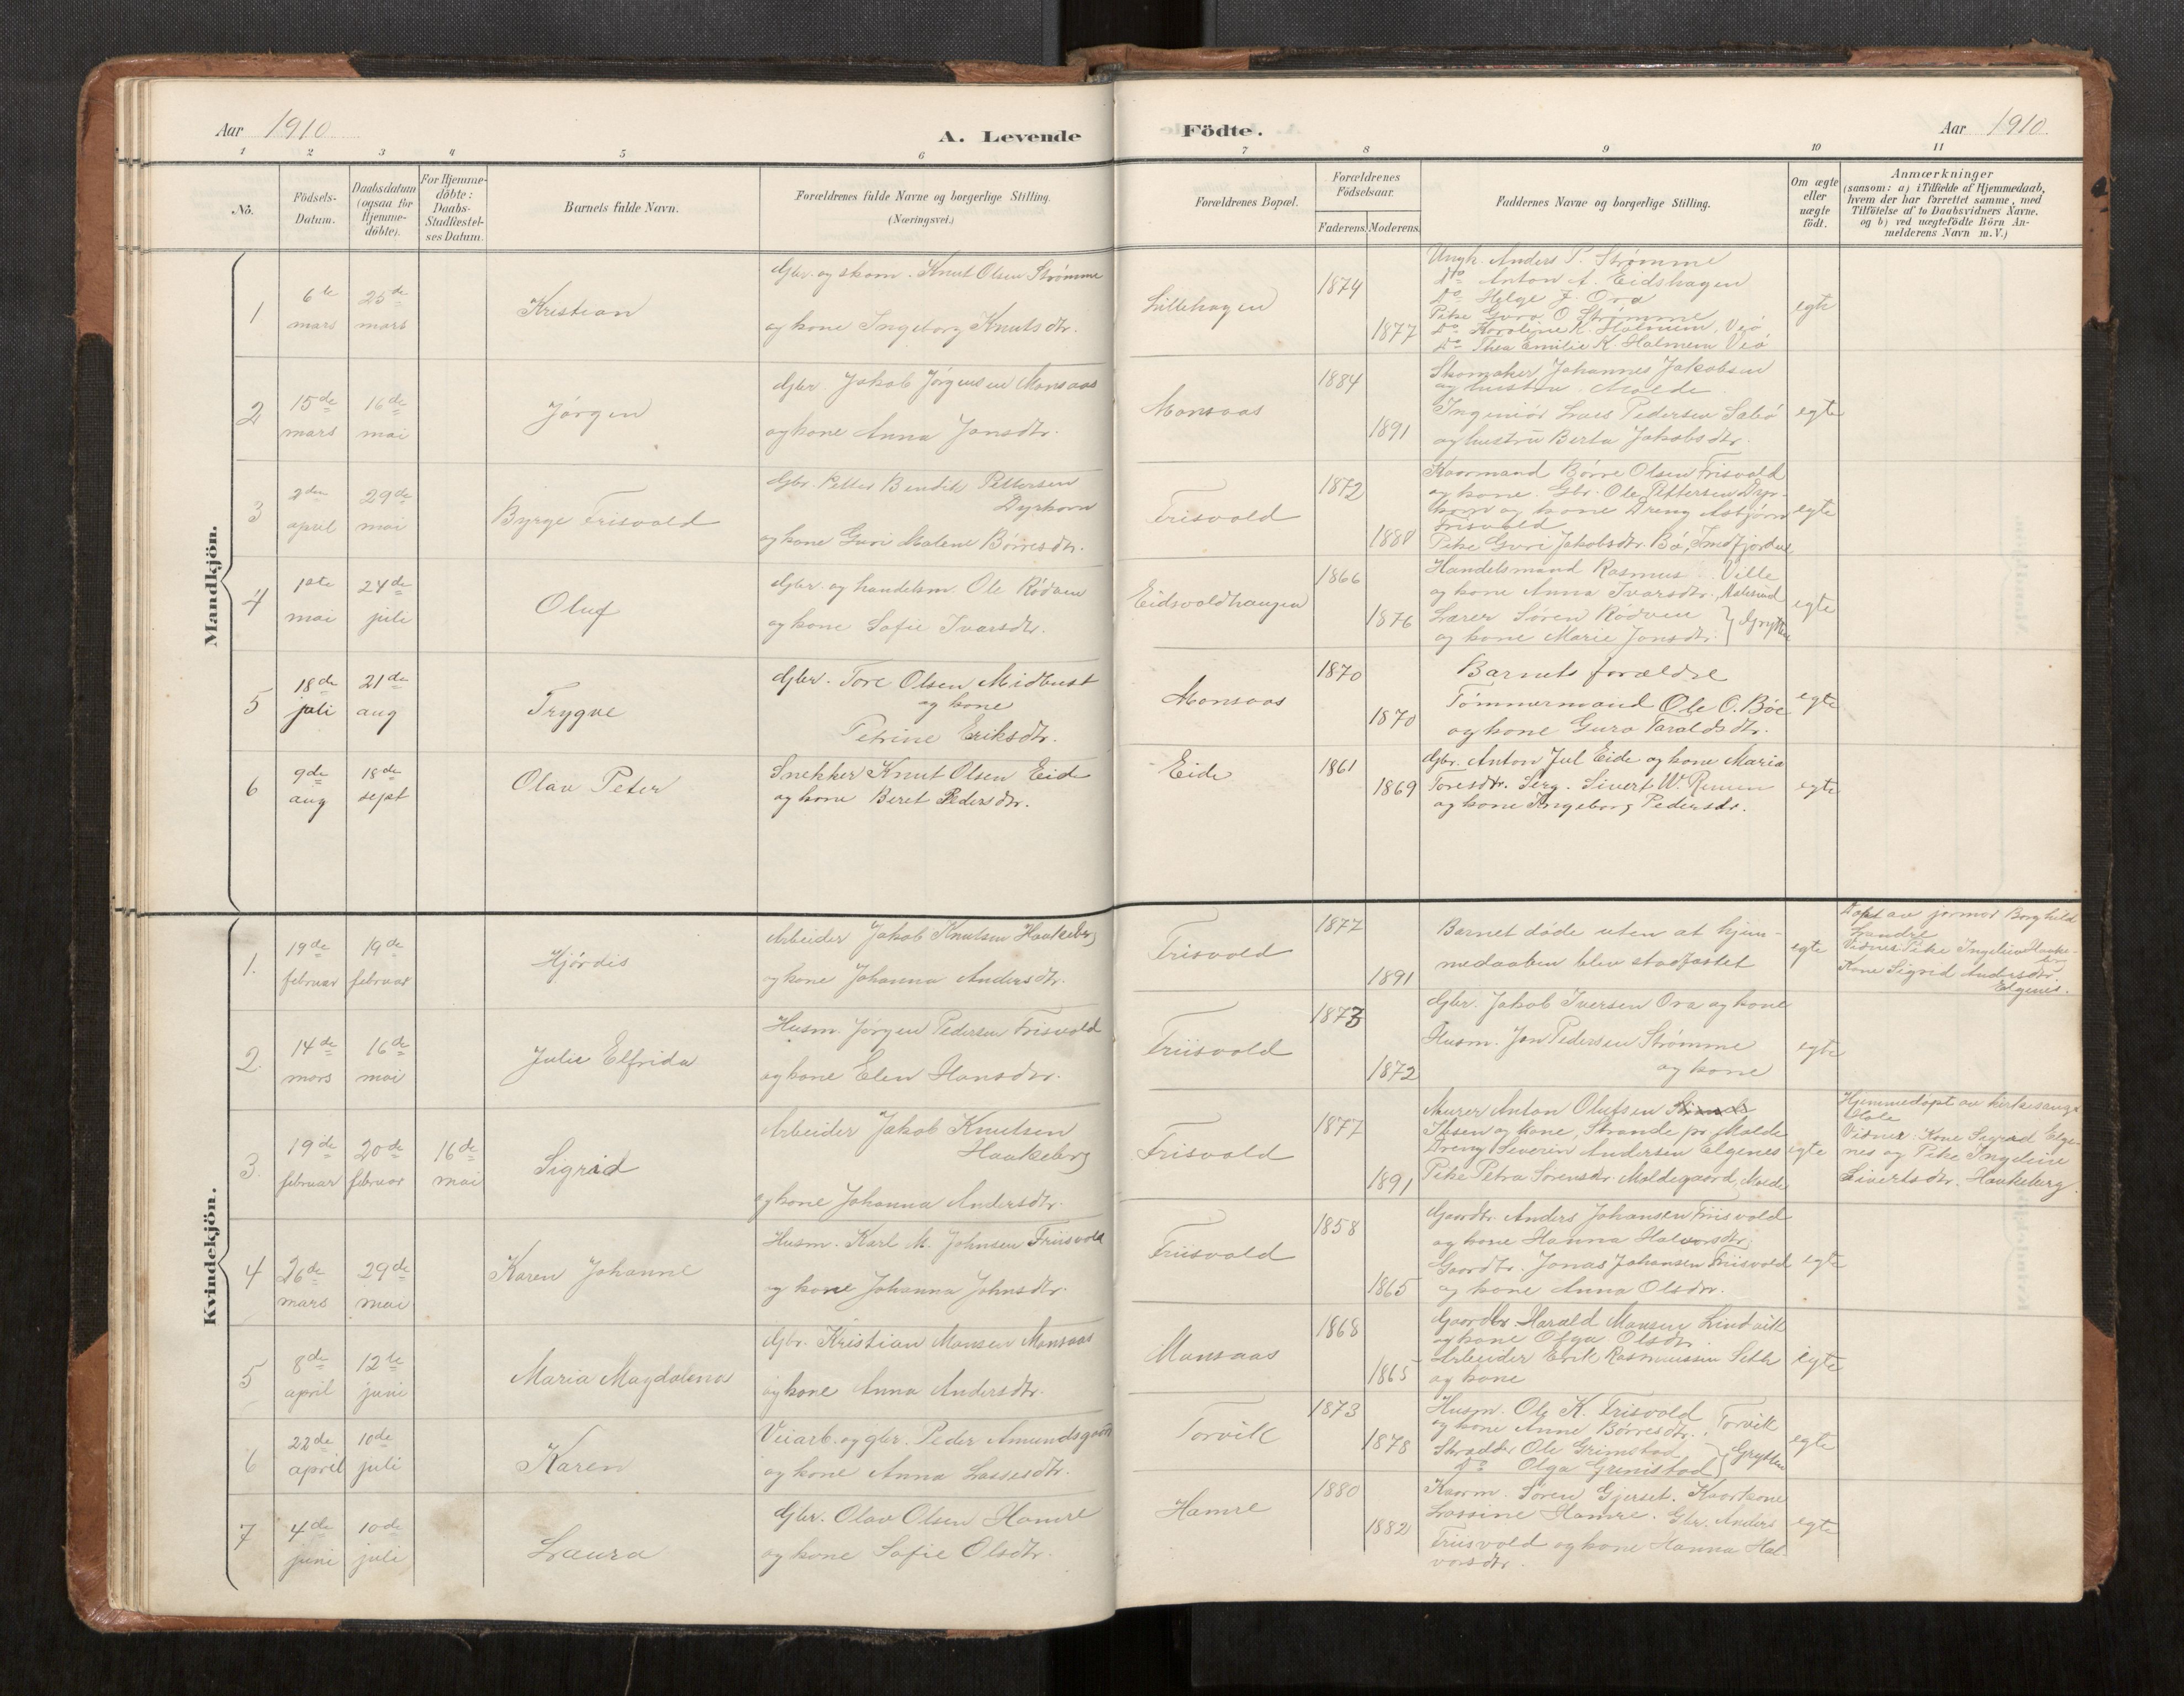 Aar 1910
A. Levende Födte.
Aar 1910.
1 2 3 4 5 6 7 8 9 10 11
No.
Födsels-Datum.
Daabsdatum (ogsaa for Hjemme-döbte).
For Hjemme-döbte: Daabs-Stadfæstel-ses Datum.
Barnets fulde Navn.
Forældrenes fulde Navne og borgerlige Stilling.
(Næringsvei.)
Forældrenes Bopæl.
Forældrenes Födselsaar.
Faderens. Moderens.
Faddernes Navne og borgerlige Stilling.
Om ægte eller uægte födt.
Anmærkninger
(saasom: a) i Tilfælde af Hjemmedaab,
hvem der har forrettet samme, med
Tilföielse af to Daabsvidners Navne.
og b) ved uægtefödte Börn An-
melderens Navn m. V.)
Mandkjön.
1
6te mars
25de mars
Kristian
Gbr. og skom. Knut Olsen Strømme
og kone Ingeborg Knutsdtr.
Lillehagen
1874
1877
Ungk. Anders P. Strømme
Do Anton A. Eidshagen
Do Helge J. Ora
Pike Guro O Strømme
Do Karoline K. Holmem, Veø,
Do Thea Emilie K. Holmem Veø
egte
2
15de mars
16de mai
Jørgen
Gbr. Jakob Jørgensen Monsaas
og kone Anna Jonsdtr.
Monsaas
1884
1891
Skomaker Johannes Jakobsen
og hustru Molde
Ingeniør Lars Pedersen Sabø
og hustru Berta Jakobsdtr.
egte
3
2den april
29de mai
Byrge Frisvold
Gbr. Petter Bendik Pettersen
Dyrkorn
og kone Guri Malene Børresdtr.
Frisvold
1872
1880
Kaarmand Børre Olsen Frisvold
og kone. Gbr. Ole Pettersen Dyr-
korn og kone Dreng Asbjørn
Frisvold
Pike Guri Jakobsdtr. Bø, Innfjorden
egte
4
1ste mai
24de juli
Oluf
Gbr. og handelsm. Ole Rødven
og kone Sofie Ivarsdtr.
Eidsvoldhaugen
1866
1876
Handelsmand Rasmus Ville
og kone Anna Ivarsdtr., Aalesund
Lærer Søren Rødven
og kone Marie Jonsdtr. } Grytten
egte
5
18de juli
21de aug
Trygve
Gbr. Tore Olsen Midbust
og kone
Petrine Eriksdtr.
Monsaas
1870
1870
Barnets forældre
Tømmermand Ole O. Bøe
og kone Guro Taraldsdtr.
egte
6
9de aug
18de sept
Olav Peter
Snekker Knut Olsen Eid
og kone Beret Pedersdtr.
Eide
1861
1869
Gbr. Anton Jul Eide og kone Maria
Toresdtr. Serg. Sivert W. Remen
og kone Ingeborg Pedersdtr.
egte
Kvindekjön.
1.
19de februar
19de februar
Hjørdis
Arbeider Jakob Knutsen Haukeberg
og kone Johanna Andersdtr.
Frisvold
1877
1891
Barnet døde uten at hjem-
medaaben blev stadfæstet
egte
Døpt av jormor Borghild
Landre
Vidnes: Pike Ingeleiv Hauke-
ber
Kone Sigrid Andersdtr.
Elgenes.
2.
14de mars
16de mai
Julie Elfrida
Husm. Jørgen Pedersen Frisvold
og kone Elen Hansdtr.
Friisvold
1873
1872
Gbr. Jakob Iversen Ora og kone
Husm. Jon Pedersen Strømme
og kone
egte
3.
19de februar
20de februar
16de mai
Sigrid
Arbeider Jakob Knutsen
Haukeberg
og kone Johanna Andersdtr.
Frisvold
1877
1891
Murer Anton Olufsen
Ibsen og kone, Strande pr. Molde
Dreng Severin Andersen Elgenes
Pike Petra Sørensdtr. Moldegaard, Molde
egte
Hjemmedøpt av kirkesang.
Hole
Vidner: Kone Sigrid Elge-
nes og Pike Ingeleiv
Sivertsdtr. Haukeberg.
4
26de mars
29de mai
Karen Johanne
Husm. Karl M. Johnsen Friisvold
og kone Johanna Johnsdtr.
Friisvold
1858
1865
Gaardbr. Anders Johansen Friisvold
og kone Hanna Halvorsdtr.
Gaardbr. Jonas Johansen Friisvold
og kone Anna Olsdtr.
egte
5
8de april
12te juni
Maria Magdalena
Gbr. Kristian Monsen Monsaas
og kone Anna Andersdtr.
Monsaas
1868
1865
Gaardbr. Harald Monsen Lindvik
og kone Olga Olsdtr
Arbeider Erik Rasmussen Seth
og kone
egte
6
22de april
10de juli
Karen
Veiarb. og gbr. Peder Amundsgaard
og kone Anna Lassesdtr.
Torvik
1873
1878
Husm. Ole K. Frisvold
og kone Anne Børresdtr. Torvik
Skrædder Ole Grimstad
Do Olga Grimstad } Grytten
egte
7
4de juni
10de juli
Laura
Gbr. Olav Olsen Hamre
og kone Sofie Olsdtr.
Hamre
1880
1882
Kaarm. Søren Gjerset. Kaarkone
Lassine Hamre. Gbr. Anders
Friisvold og kone Hanna Hal-
vorsdtr.
egte